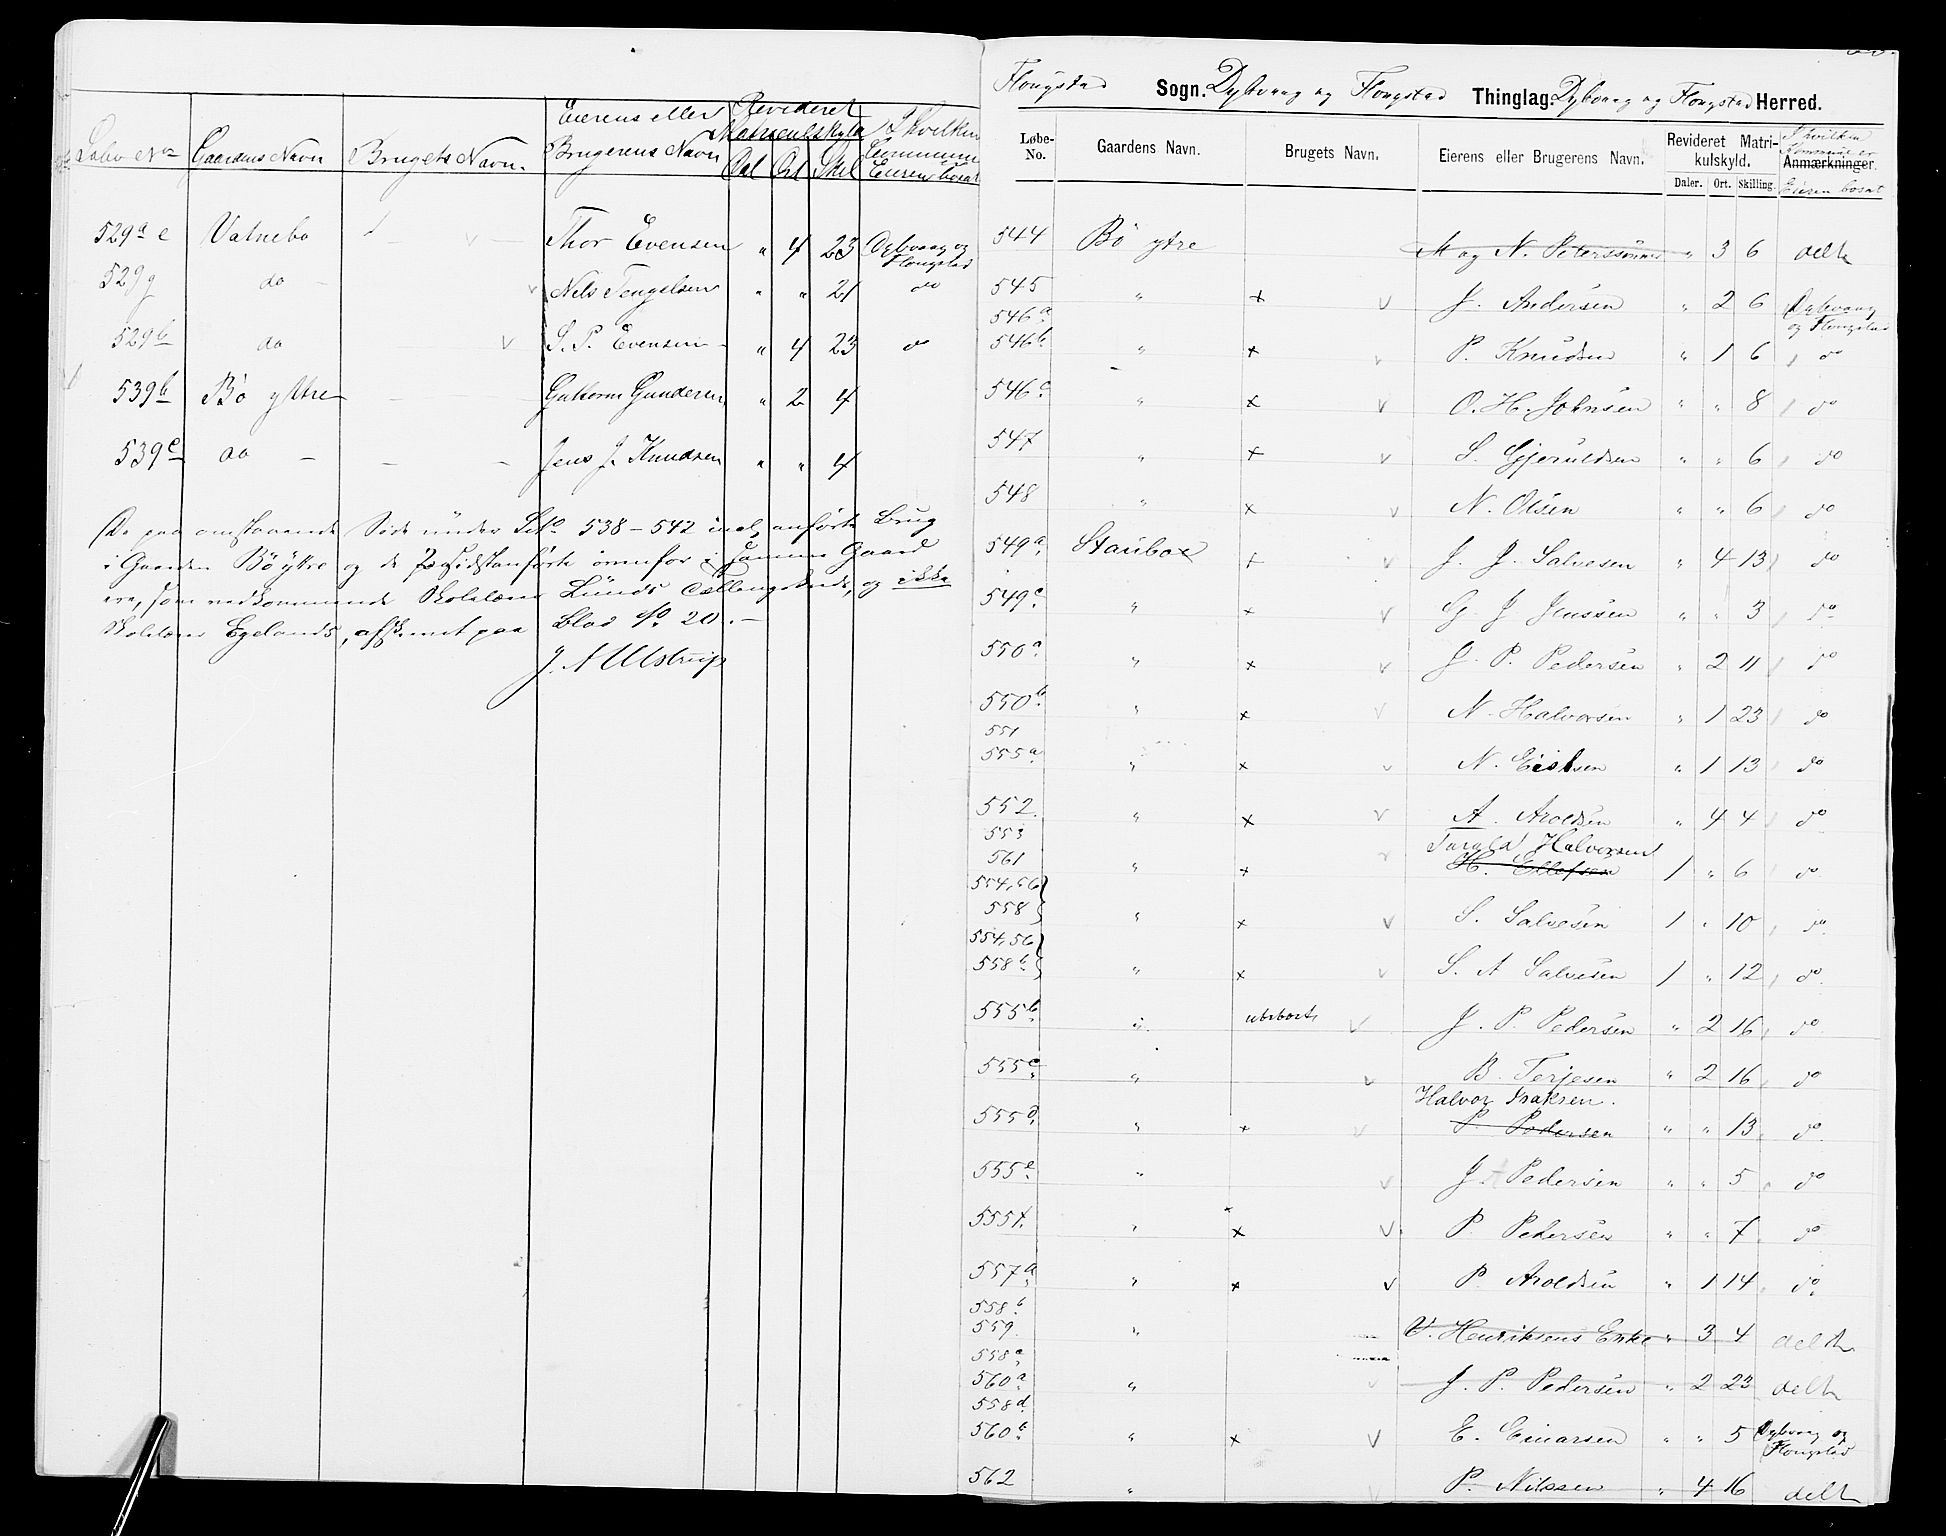 Løbe No Gaardens Navn Brugets Navn. Eierens eller Brugerens Navn Revideret Matriculskyld Dal Ort Skil I hvilken Kommune Eieren bosat
529a e Vatnebo Thor Evensen " 4 23 Dybvaag og Flougstad
529g do Nils Tengelsen " " 21 do
529b do S. P. Evensen " 4 23 do
539b Bö yttre Guttorm Gundersen " 2 4
539c do Jens J. Knudsen " " 4
De paa omstaaende Side under Lit. 538-542 incl. anførte Brug
i Gaarden Bö yttre og de 2de sidstanførte ovenfor i samme Gaard
ere, som vedkommende Skolelærer Lunds Tællingskreds, og ikke
Skolelærer Egelands, afskrevet paa Blad No 20. -
J. A Ulstrup
Flougstad Sogn. Dybvaag og Flougstad Thinglag. Dybvaag og Flougstad Herred.
Løbe-No. Gaardens Navn. Brugets Navn. Eierens eller Brugerens Navn. Revideret Matrikulskyld. Daler. Ort. Skilling. Anmærkninger. I hvilken Kommune er Eieren bosat
544 Bö ytre M og N. Peterssønner " 3 6 delt
545 " + J. Andersen " 2 6 Dybvaag og Flougstad
546a
546b " + P. Knudsen " 1 6 do
546c " + O. H. Johnsen " " 8 do
547 " + S. Gjeruldsen " " 6 do
548 " x N. Olsen " " 6 do
549a Stauboe + J. J. Salvesen " 4 13 do
549c " x G. J Jenssen " " 3 do
550a " x J. P. Pedersen " 2 11 do
550b " x N. Halvorsen " 1 23 do
551
555a " x N. Eielsen " 1 13 do
552 " x A. Aroldsen " 4 4 do
553
561 " x Tarald Halvorsen H. Ellefsen 1 " 6 do
554, 56
558 " x S. Salvesen 1 " 10 do
554, 56
558b " x S. A Salvesen 1 " 12 do
555b " ubeboet J. P. Pedersen " 2 16 do
555c " B. Terjesen " 2 16 do
Halvor Isaksen.
555d " x P. Pedersen " " 13 do
555e " J. Pedersen " " 5 do
555f " x P. Pedersen " " 7 do
557a " x P. Aroldsen " 1 14 do
558b
559 " V. Henriksens Enke " 3 4 delt
558a
560a " J. P. Pedersen " 2 23 delt
558d
560b " x E. Einarsen " " 5 Dybvaag og Flougstad
562 " P. Nilssen " 4 16 delt